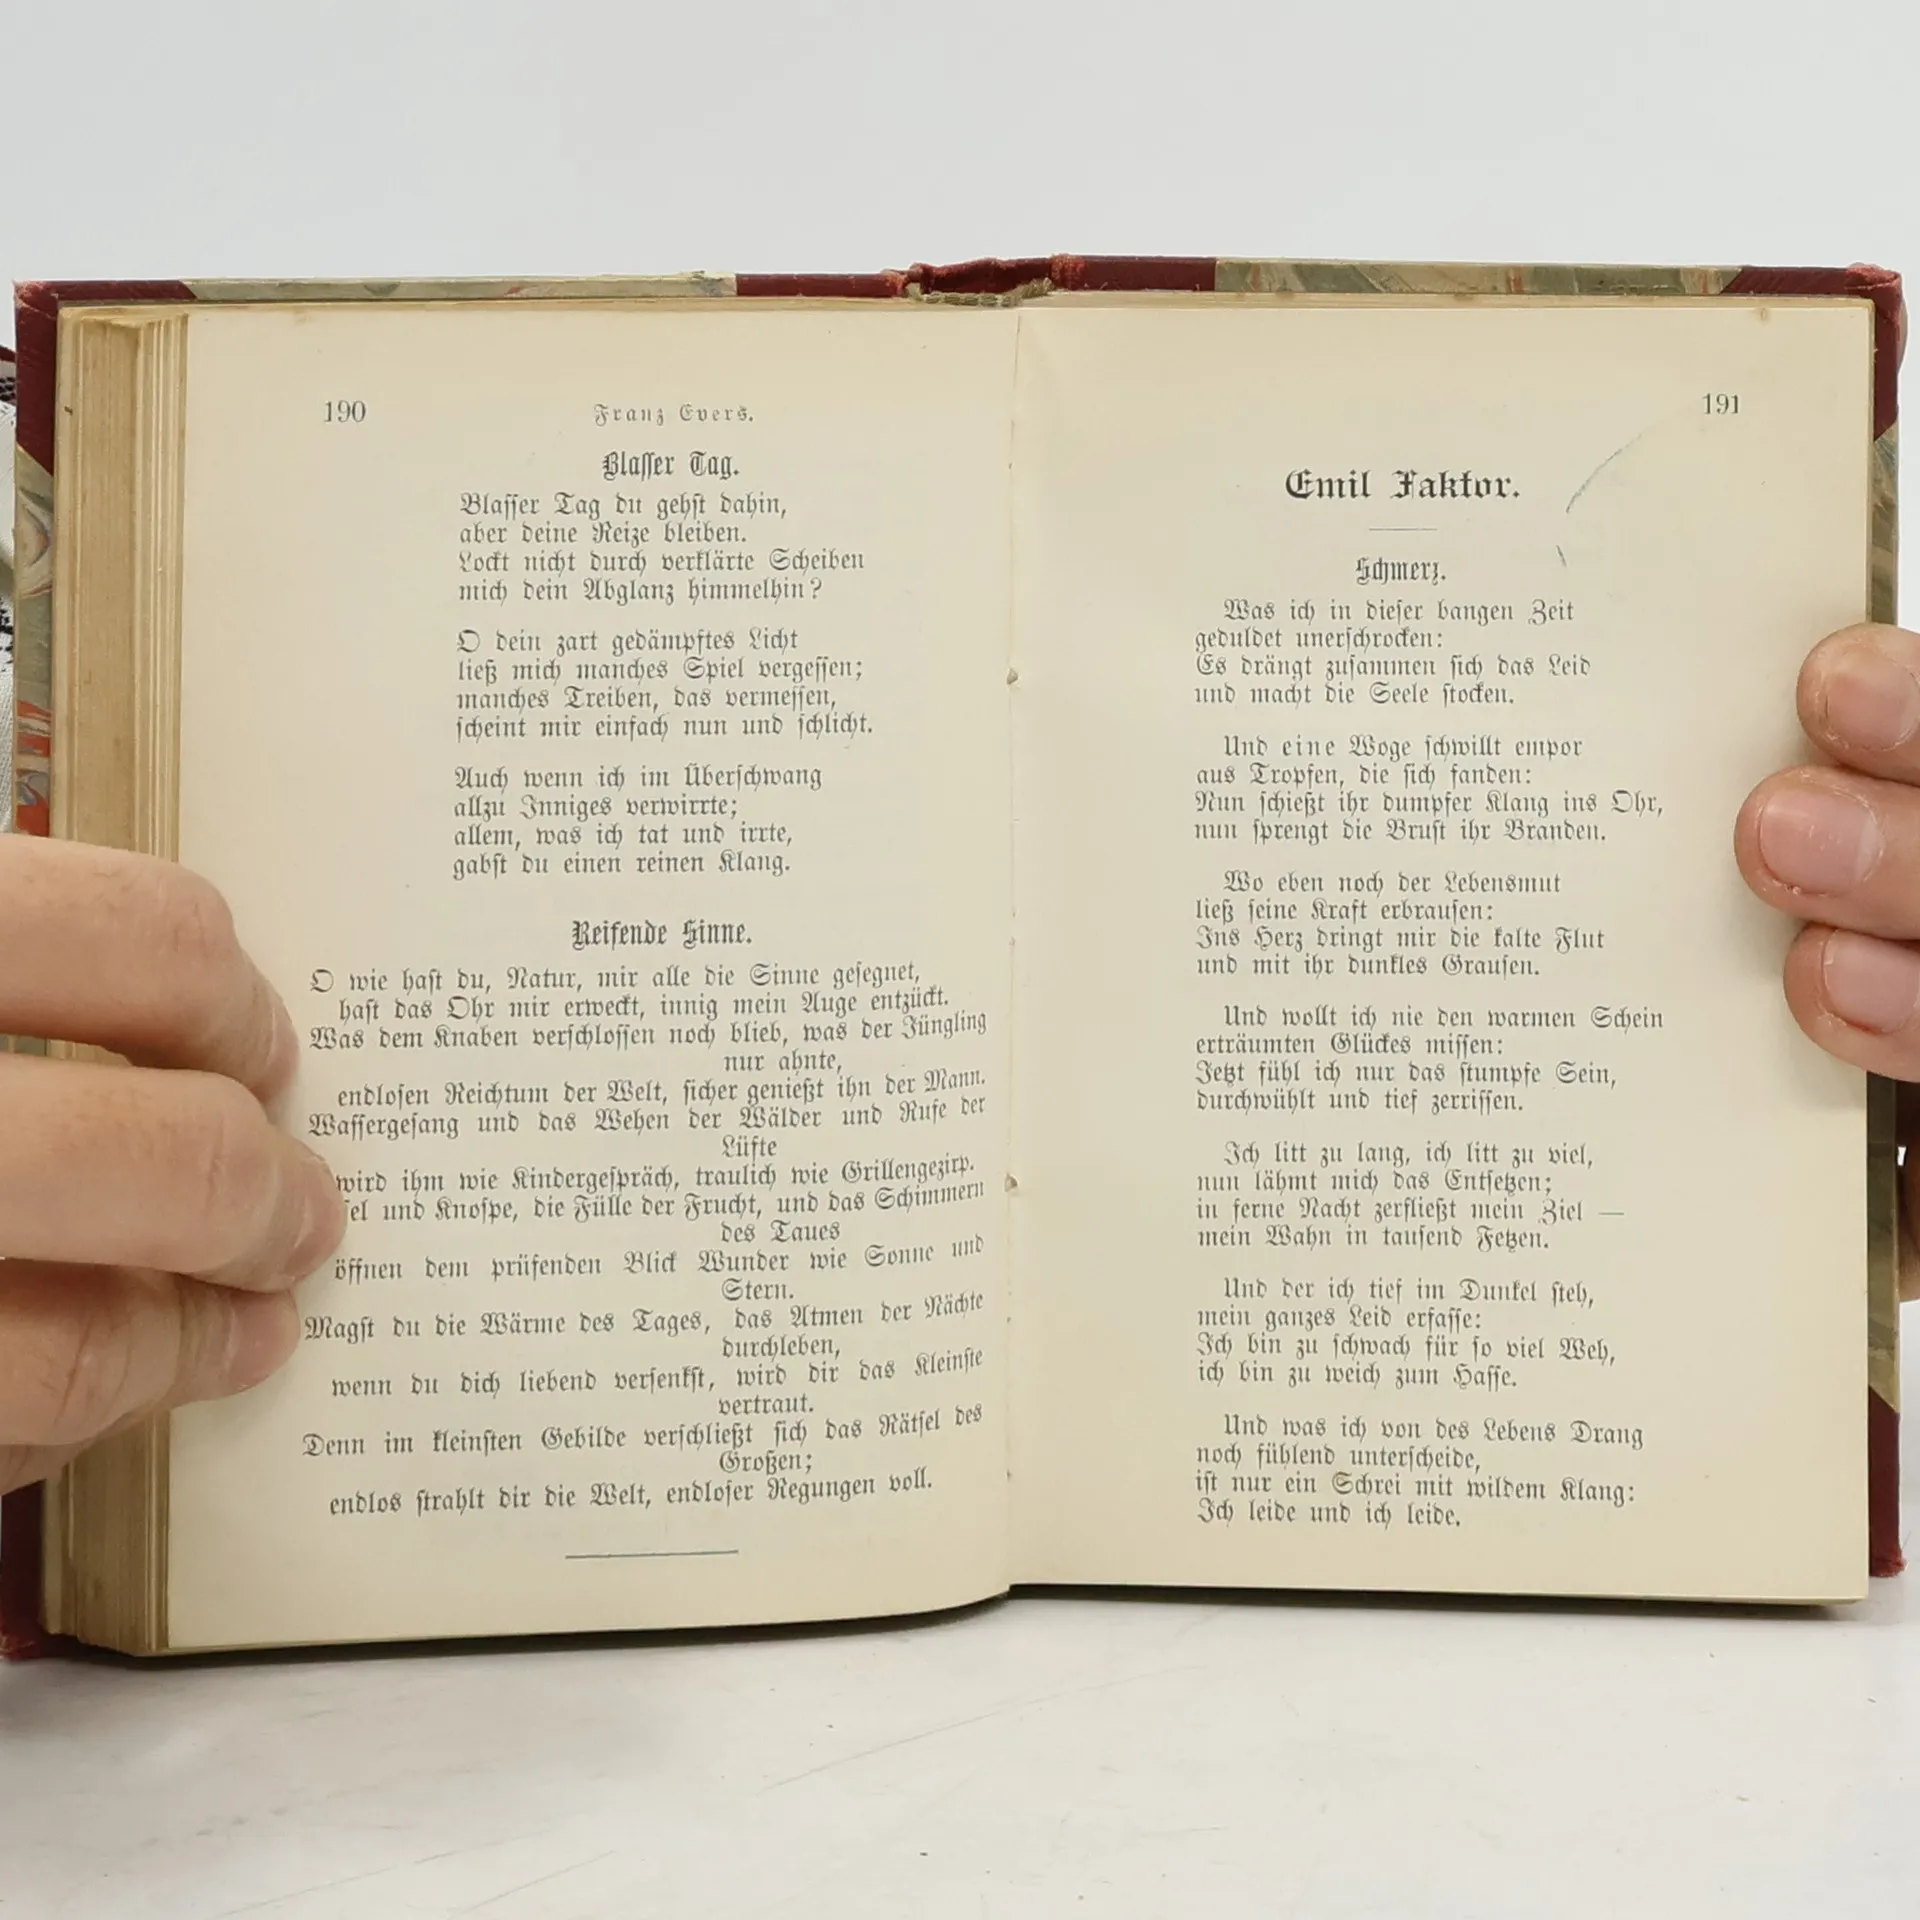 190
Franz Evers.
Blasser Tag.
Blasser Tag du gehst dahin,
aber deine Reize bleiben.
Lockt nicht durch verklärte Scheiben
mich dein Abglanz himmelhin?
O dein zart gedämpftes Licht
ließ mich manches Spiel vergessen;
manches Treiben, das vermessen,
scheint mir einfach nun und schlicht.
Auch wenn ich im Überschwang
allzu Inniges verwirrte;
allem, was ich tat und irrte,
gabst du einen reinen Klang.
Reifende Sinne.
O wie hast du, Natur, mir alle die Sinne gesegnet,
hast das Ohr mir erweckt, innig mein Auge entzückt.
Was dem Knaben verschlossen noch blieb, was der Jüngling
nur ahnte,
endlosen Reichtum der Welt, sicher genießt ihn der Mann.
Wassergesang und das Wehen der Wälder und Rufe der
Lüfte
wird ihm wie Kindergespräch, traulich wie Grillengezirp.
und Knospe, die Fülle der Frucht, und das Schimmern
des Taues
öffnen dem prüfenden Blick Wunder wie Sonne und
Stern.
Magst du die Wärme des Tages, das Atmen der Nächte
durchleben,
wenn du dich liebend versenkst, wird dir das Kleinste
vertraut.
Denn im kleinsten Gebilde verschließt sich das Rätsel des
Großen;
endlos strahlt dir die Welt, endloser Regungen voll.
191
Emil Faktor.
Schmerz.
Was ich in dieser bangen Zeit
geduldet unerschrocken:
Es drängt zusammen sich das Leid
und macht die Seele stocken.
Und eine Woge schwillt empor
aus Tropfen, die sich fanden:
Nun schießt ihr dumpfer Klang ins Ohr,
nun sprengt die Brust ihr Branden.
Wo eben noch der Lebensmut
ließ seine Kraft erbrausen:
Ins Herz dringt mir die kalte Flut
und mit ihr dunkles Grausen.
Und wollt ich nie den warmen Schein
erträumten Glückes missen:
Jetzt fühl ich nur das stumpfe Sein,
durchwühlt und tief zerrissen.
Ich litt zu lang, ich litt zu viel,
nun lähmt mich das Entsetzen;
in ferne Nacht zerfließt mein Ziel —
mein Wahn in tausend Fetzen.
Und der ich tief im Dunkel steh,
mein ganzes Leid erfasse:
Ich bin zu schwach für so viel Weh,
ich bin zu weich zum Hasse.
Und was ich von des Lebens Drang
noch fühlend unterscheide,
ist nur ein Schrei mit wildem Klang:
Ich leide und ich leide.